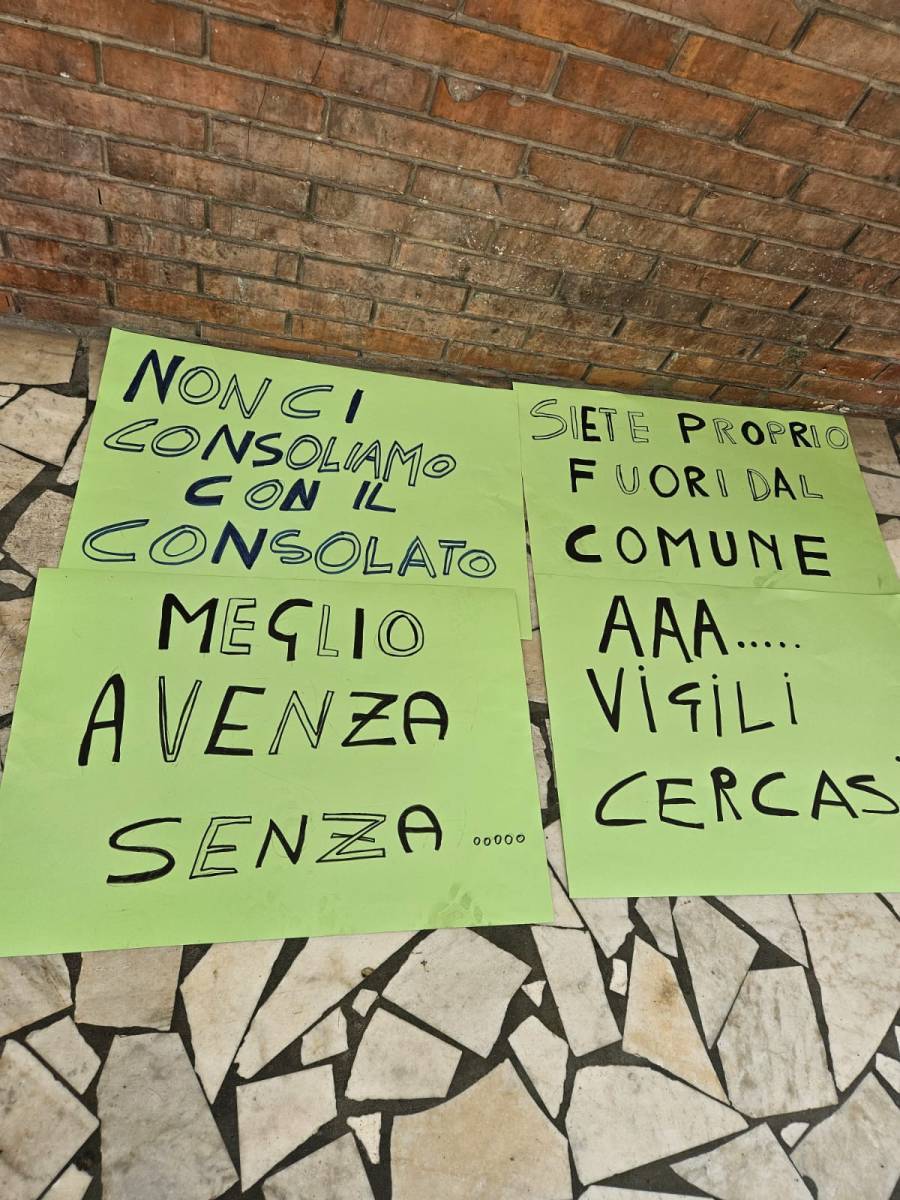 NON CI
CONSOLIAMO
CON IL
CONSOLATO
SIETE PROPRIO
FUORI DAL
COMUNE
MEGLIO
AVENZA
SENZA .....
AAA.....
VIGILI
CERCASI